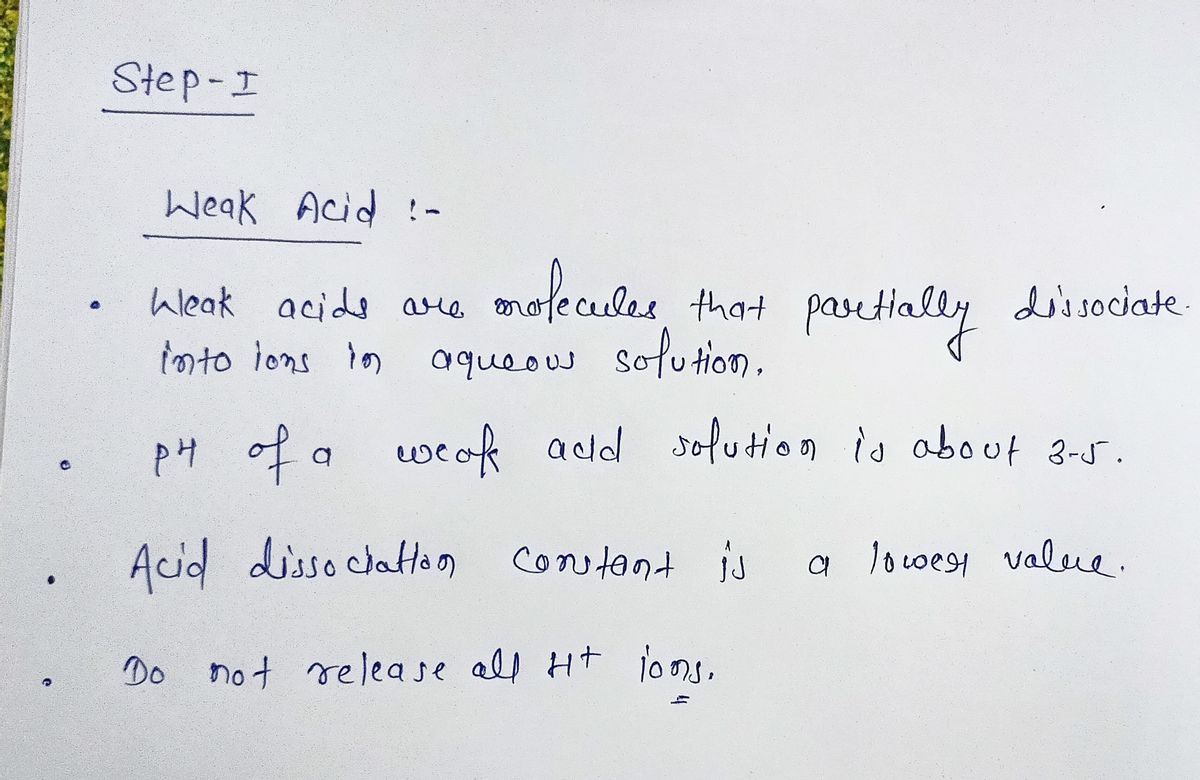 Step-I
Weak Acid :-
• Weak acids are molecules that partially dissociate
into ions in aqueous solution.
• pH of a weak acid solution is about 3-5.
• Acid dissociation constant is a lower value.
• Do not release all H+ ions.